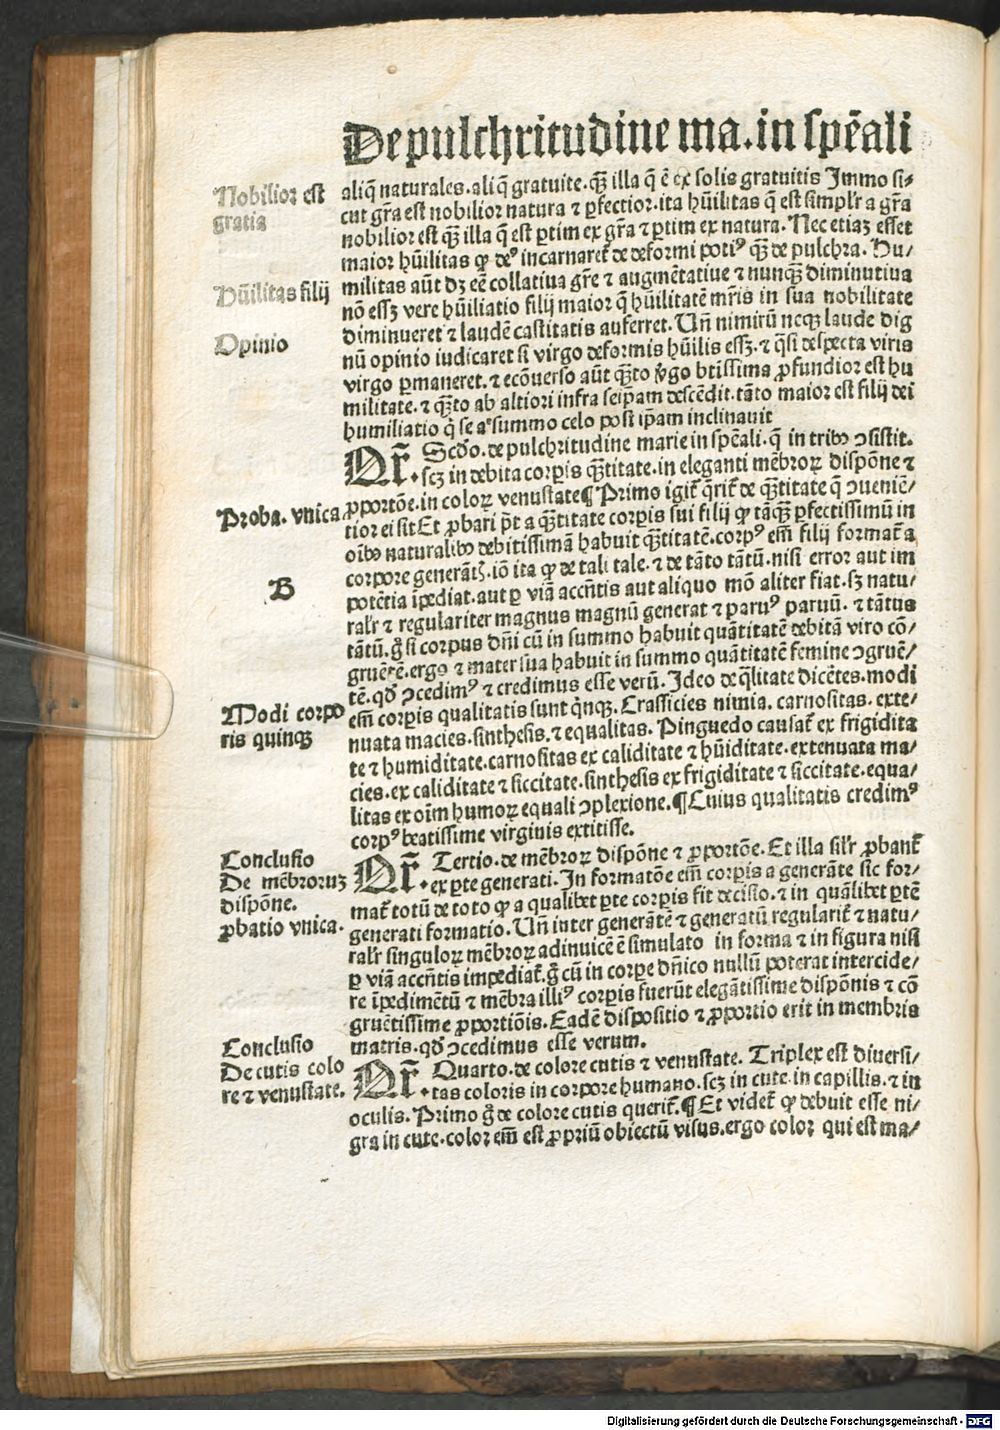 De pulchritudine ma. in spēali
Nobilior est
gratia
Hūilitas filij
Opinio
aliq̄ naturales. aliq̄ gratuite. qꝫ illa q̄ ē ex solis gratuitis Immo si⸗
cut gr̄a est nobilior natura ⁊ ꝑfectior. ita hūilitas q̄ est simplr̄ a gr̄a
nobilior est qꝫ illa q̄ est ꝑtim ex gr̄a ⁊ ꝑtim ex natura. Nec etiaꝫ esset
maior hūilitas ꝙ deꝰ incarnaret᷑ de deformi potiꝰ qꝫ de pulchra. Hu⸗
militas aūt dꝫ eē collatiua gr̄e ⁊ augmētatiue ⁊ nunqꝫ diminutiua
nō essꝫ vere hūiliatio filij maior q̄ hūilitatē mr̄is in sua nobilitate
diminueret ⁊ laudē castitatis auferret. Vn̄ nimirū neqꝫ laude dig
nū opinio iudicaret si virgo deformis hūilis essꝫ. ⁊ q̄si despecta viris
virgo ꝑmaneret. ⁊ ecōuerso aūt qꝫto v̓go btīssima ꝓfundior est hu
militate. ⁊ qꝫto ab altiori infra seip̄am descēdit. tāto maior est filij dei
humiliatio q̓ se a summo celo post ip̄am inclinauit
Qr̄. Scd̄o. de pulchritudine marie in spēali. q̄ in tribꝰ ꝯsistit.
.scꝫ in debita corꝑis qꝫtitate. in eleganti mēbroꝝ dispōne ⁊
Proba. vnica
ꝓportōe. in coloꝝ venustate ¶ Primo igit᷑ q̄rit᷑ de qꝫtitate q̄ ꝯueniē⸗
tior ei sit Et ꝓbari pt̄ a qꝫtitate corꝑis sui filij ꝙ tāqꝫ ꝑfectissimū in
oībꝰ naturalibꝰ debitissimā habuit qꝫtitatē. corpꝰ em̄ filij format᷑ a
B
corpore generātꝭ. iō ita ꝙ de tali tale. ⁊ de tāto tātū. nisi error aut im
potētia īpediat. aut ꝑ viā accn̄tis aut aliquo mō aliter fiat. sꝫ natu⸗
ralr̄ ⁊ regulariter magnus magnū generat ⁊ paruꝰ paruū. ⁊ tātus
tātū. g̊ si corpus dn̄i cū in summo habuit quātitatē debitā viro cō⸗
gruētē. ergo ⁊ mater sua habuit in summo quātitatē femine ꝯgruē⸗
tē. qd̓ ꝯcedimꝰ ⁊ credimus esse verū. Ideo de q̄litate dicētes. modi
Modi corpo
ris quinqꝫ
em̄ corꝑis qualitatis sunt q̓nqꝫ. Crassicies nimia. carnositas. exte⸗
nuata macies. sinthesis. ⁊ equalitas. Pinguedo causat᷑ ex frigidita
te ⁊ humiditate. carnositas ex caliditate ⁊ hūiditate. extenuata ma⸗
cies. ex caliditate ⁊ siccitate. sinthesis ex frigiditate ⁊ siccitate. equa⸗
litas ex oīm humoꝝ equali ꝯplexione. ¶ Cuius qualitatis credimꝰ
corpꝰ beatissime virginis extitisse.
Conclusio
De mēbroruꝫ
dispōne.
ꝓbatio vnica.
Qr̄. Tertio. de mēbroꝝ dispōne ⁊ ꝓportōe. Et illa silr̄ ꝓbant᷑
.ex ꝑte generati. In formatōe em̄ corꝑis a generāte sic for⸗
mat᷑ totū de toto ꝙ a qualibet ꝑte corꝑis fit decisio. ⁊ in quālibet ꝑtē
generati formatio. Vn̄ inter generātē ⁊ generatū regularit᷑ ⁊ natu⸗
ralr̄ singuloꝝ mēbroꝝ adinuicē ē simulato in forma ⁊ in figura nisi
ꝑ viā accn̄tis impediat᷑. g̊ cū in corꝑe dn̄ico nullū poterat intercide⸗
re īpedimētū ⁊ mēbra illiꝰ corꝑis fuerūt elegātissime dispōnis ⁊ cō
gruētissime ꝓportiōis. Eadē dispositio ⁊ ꝓportio erit in membris
matris. qd̓ ꝯcedimus esse verum.
Conclusio
De cutis colo
re ⁊ venustate.
Qr̄. Quarto. de colore cutis ⁊ venustate. Triplex est diuersi⸗
.tas coloris in corpore humano. scꝫ in cute. in capillis. ⁊ in
oculis. Primo g̊ de colore cutis querit᷑. ¶ Et videt᷑ ꝙ debuit esse ni⸗
gra in cute. color em̄ est ꝓpriū obiectū visus. ergo color qui est ma⸗
Digitalisierung gefördert durch die Deutsche Forschungsgemeinschaft - DFG